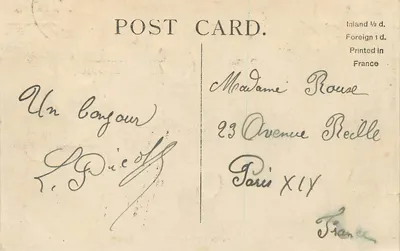 POST CARD.
Inland ½ d.
Foreign 1 d.
Printed in
France
Un bonjour
Madame Rouse
23 Avenue Reille
Paris XIV
France